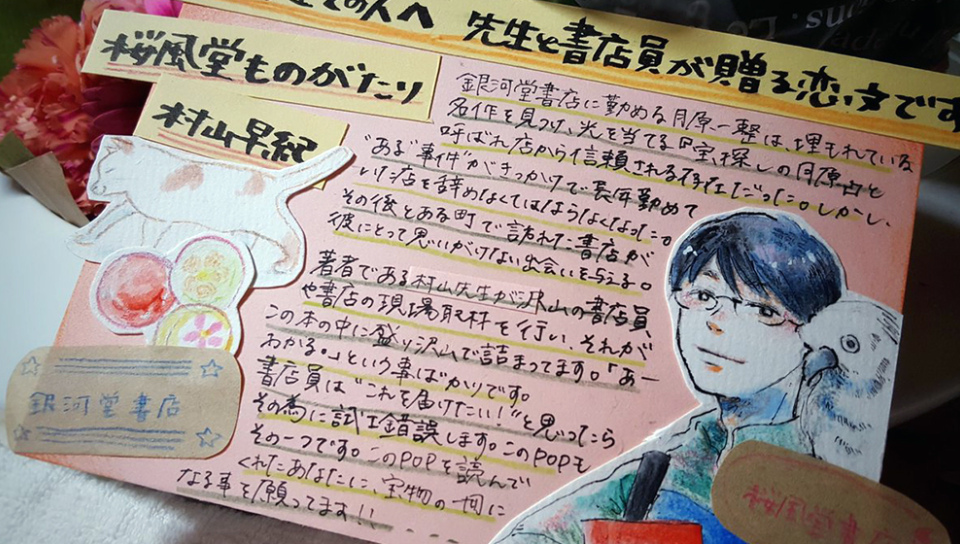 ての人へ 先生と書店員が贈る恋文です
桜風堂ものがたり
村山早紀
銀河堂書店に勤める月原一整は、埋もれている
名作を見つけ、光を当てる『宝探しの月原』と
呼ばれ店から信頼される存在だった。しかし、
"ある"事件"がきっかけで長年勤めて
いた店を辞めなくてはならなくなった。
その後とある町で訪れた書店が
彼にとって思いがけない出会いを与える。
著者である村山先生が沢山の書店員
や書店の現場取材を行い、それが
この本の中に盛り沢山で詰まってます。「あー
わかる。」という事ばかりです。
書店員は"これを届けたい!"と思ったら
その為に試行錯誤します。このPOPも
その一つです。このPOPを読んで
くれたあなたに、宝物の一冊に
なる事を願ってます!!
銀河堂書店
桜風堂書店